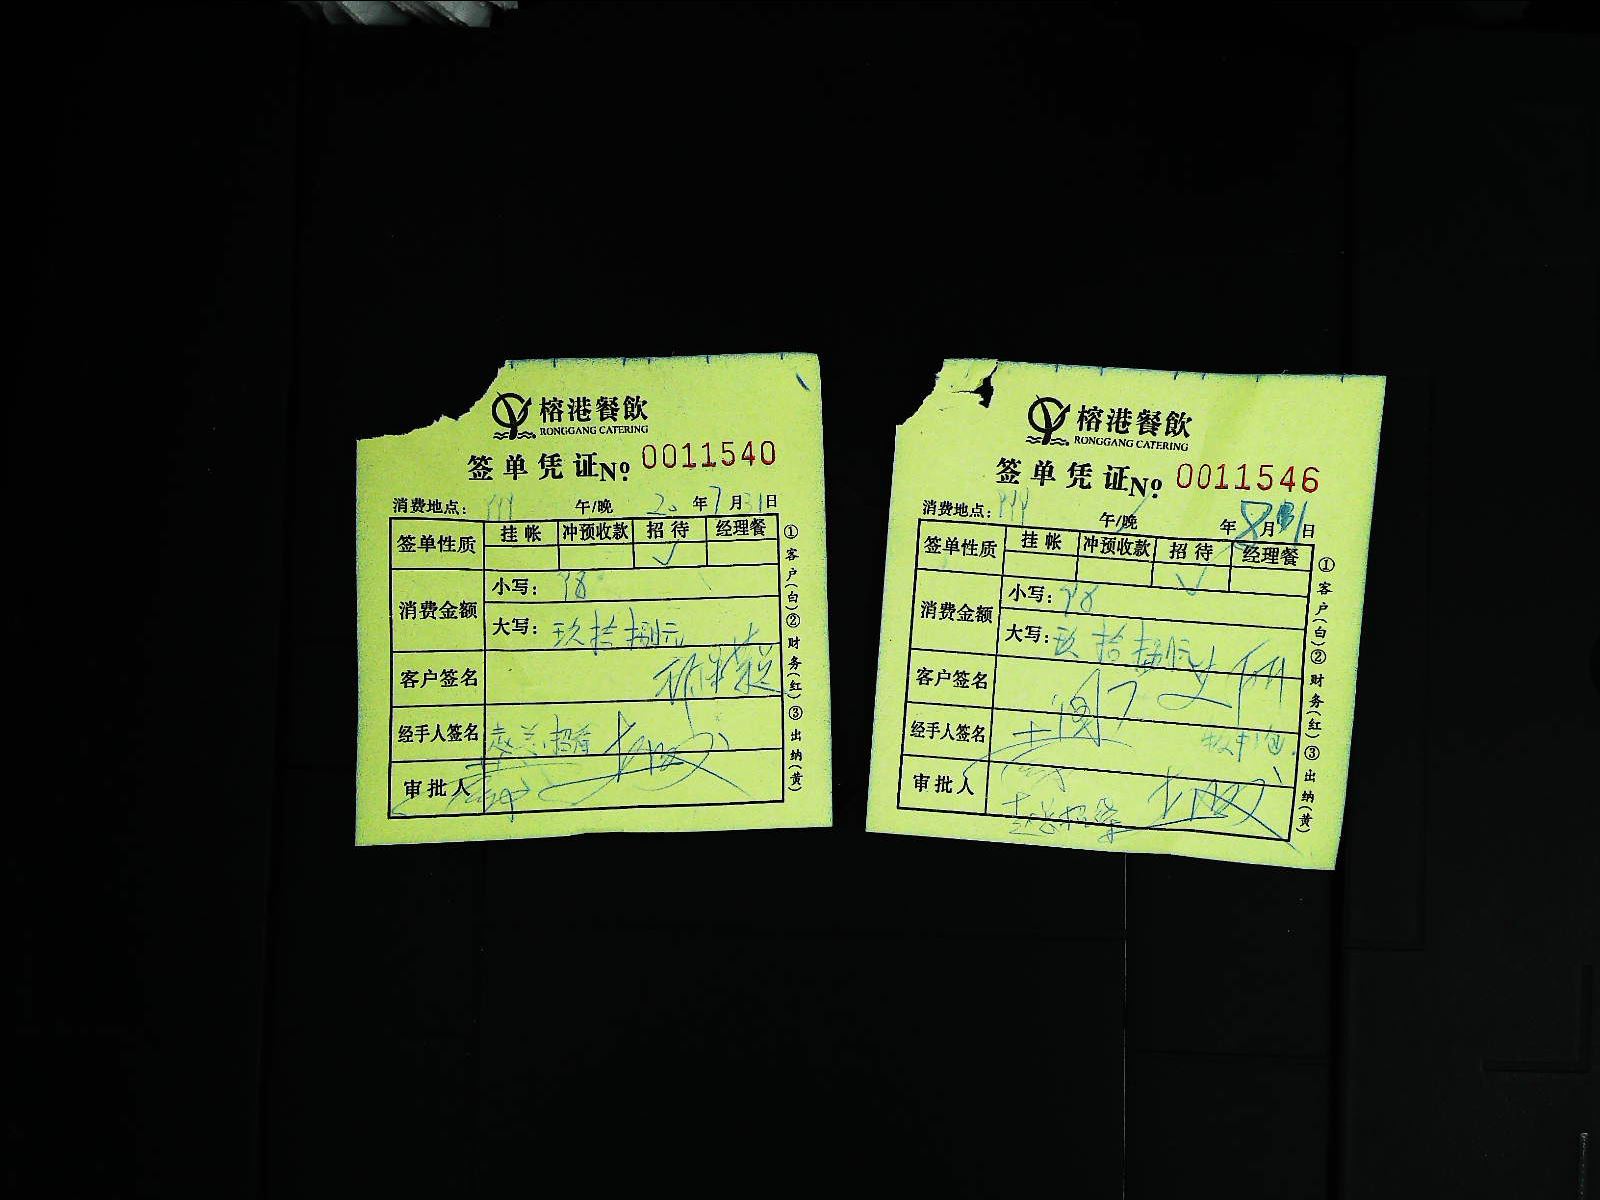 榕港餐飲
RONGGANG CATERING
签单凭证No. 0011540
消费地点: 999 午/晚 20 年 7 月 31 日
签单性质 挂帐 冲预收款 招待 经理餐
✓
消费金额 小写: 98
大写: 玖拾捌元
客户签名
经手人签名 赵总招待
审批人
①客户(白)②财务(红)③出纳(黄)
榕港餐飲
RONGGANG CATERING
签单凭证No. 0011546
消费地点: 999 午/晚 年 8 月 日
签单性质 挂帐 冲预收款 招待 经理餐
✓
消费金额 小写: 98
大写: 玖拾捌元
客户签名
经手人签名
审批人
赵总招待
①客户(白)②财务(红)③出纳(黄)